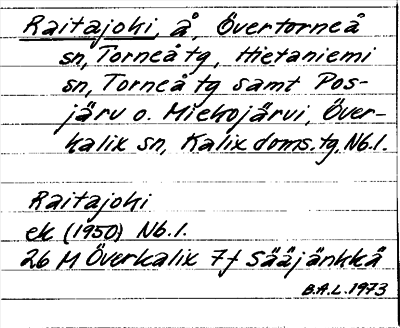 Raitajoki, å, Övertorneå
sn, Torneå tg, Hietaniemi
sn, Torneå tg samt Pos-
järv o. Miekojärvi, Över-
kalix sn, Kalix doms. tg. Nb.l.
Raitajoki
ek (1950) Nb.l.
26 M Överkalix 7f Sääjänkkä
B.A.L. 1973